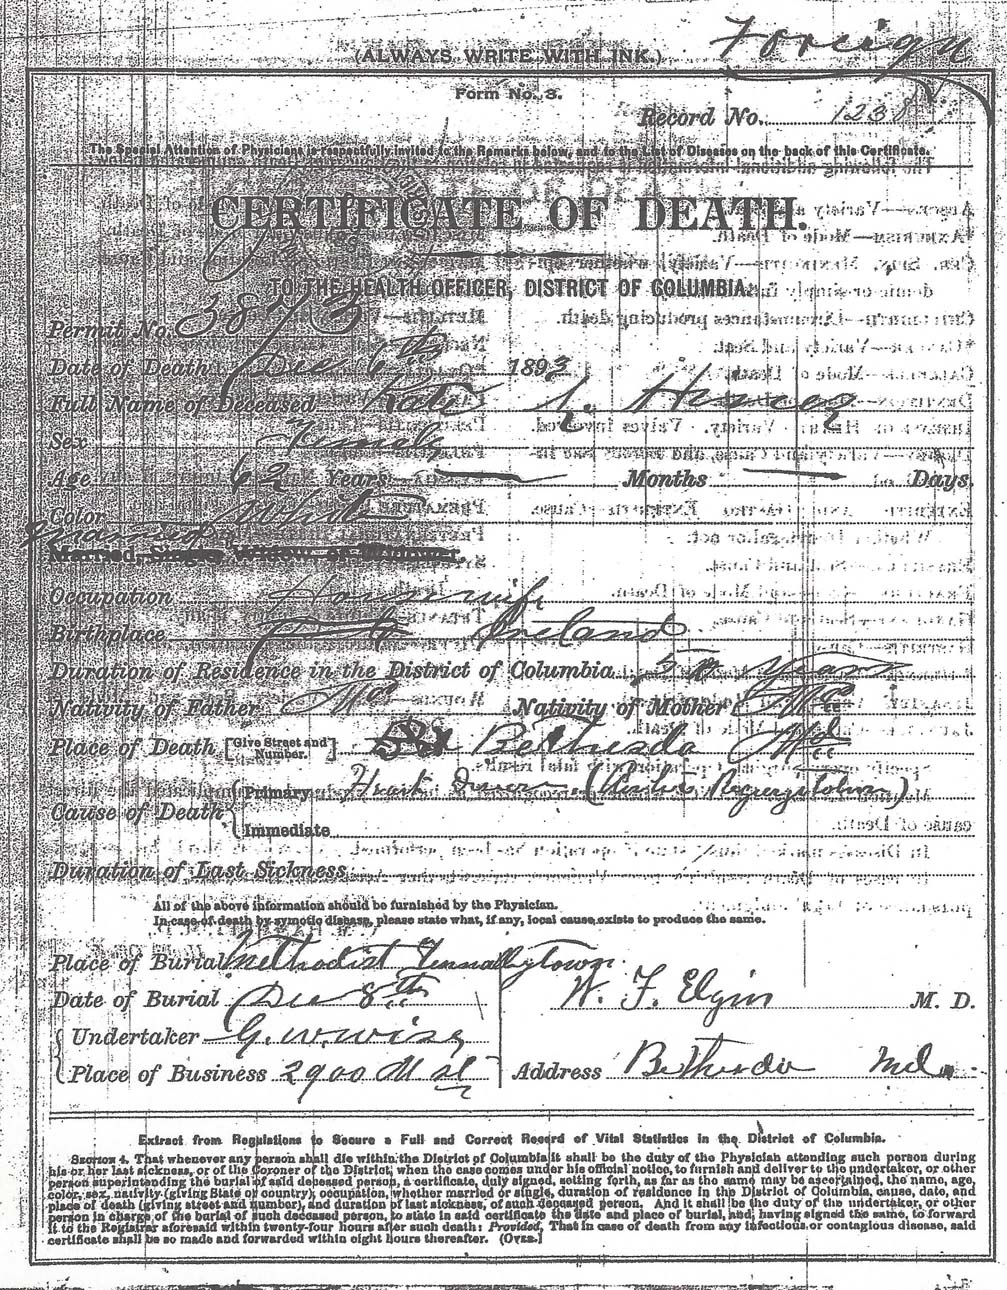 Foreign
(ALWAYS WRITE WITH INK.)
Form No. 3.
Record No. 1238
The Special Attention of Physicians is respectfully invited to the Remarks below, and to the List of Diseases on the back of this Certificate.
CERTIFICATE OF DEATH.
TO THE HEALTH OFFICER, DISTRICT OF COLUMBIA:
Permit No. 3873
Date of Death Dec 6th 1893
Full Name of Deceased Kate
Sex Female
Age 62 Years — Months — Days.
Color White
Married
Married, Single, Widow, or Widower.
Occupation Housewife
Birthplace Ireland
Duration of Residence in the District of Columbia Years
Nativity of Father Nativity of Mother
Place of Death [Give Street and Number.] Bethesda Md
Cause of Death { Primary Heart Disease (Regurgitation)
Immediate
Duration of Last Sickness
All of the above information should be furnished by the Physician.
In case of death by zymotic disease, please state what, if any, local cause exists to produce the same.
Place of Burial Methodist Tennallytown.
Date of Burial Dec 8th
W. F. Elgin M. D.
Undertaker G. W. Wise
Place of Business 2900 M st
Address Bethesda Md.
Extract from Regulations to Secure a Full and Correct Record of Vital Statistics in the District of Columbia.
SECTION 4. That whenever any person shall die within the District of Columbia it shall be the duty of the Physician attending such person during
his or her last sickness, or of the Coroner of the District, when the case comes under his official notice, to furnish and deliver to the undertaker, or other
person superintending the burial of said deceased person, a certificate, duly signed, setting forth, as far as the same may be ascertained, the name, age,
color, sex, nativity (giving State or country), occupation, whether married or single, duration of residence in the District of Columbia, cause, date, and
place of death (giving street and number), and duration of last sickness, of such deceased person. And it shall be the duty of the undertaker, or other
person in charge of the burial of such deceased person, to state in said certificate the date and place of burial, and, having signed the same, to forward
it to the Registrar aforesaid within twenty-four hours after such death: Provided, That in case of death from any infectious or contagious disease, said
certificate shall be so made and forwarded within eight hours thereafter. (OVER.)